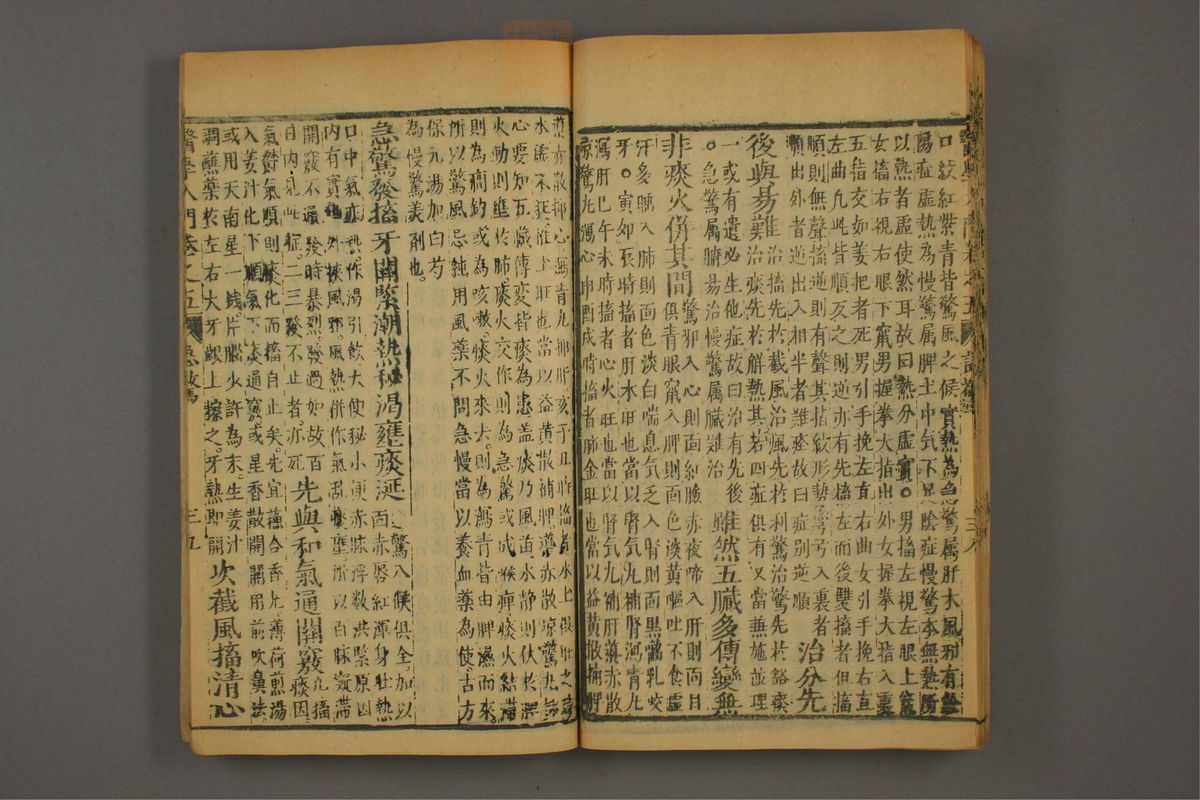 口紋紅紫青皆驚風之候實熱為急驚屬肝木風邪有餘
陽症虛熱為慢驚属脾土中気不足陰症慢驚本無熱所
以熱者虛使然耳故曰熱分虛實。男搐左視左眼上竄
女搐右視右眼下竄男握拳大指出外女握拳大指入裏
五指交如姜把者死男引手挽左直右曲女引手挽右直
左曲凡此皆順反之則逆亦有先搐左而後雙搐者但搐
順則無聲搐逆則有聲其指欲形勢弯弓入裏者
順出外者逆出入相半者難痊故曰症別逆順 治分先
後與易難治搐先於截風治風先於利驚治驚先於豁痰
治痰先於解熱其若四症俱有又當兼施並理
一或有遺必生他症故曰治有先後雖然五臟多傳變無
。急驚属腑易治慢驚属臟難治
非痰火併其間驚邪入心則面紅臉赤夜啼入肝則面目
俱青眼竄入脾則面色淡黄嘔吐不食虛
汗多睡入肺則面色淡白喘息気乏入腎則面黒嚙乳咬
牙。寅卯辰時搐者肝木旺也當以腎気九補腎瀉青九
瀉肝巳午未時搐者心火旺也當以腎気九補肝導赤散
凉驚九瀉心申酉戌時搐者肺金旺也當以益黄散補脾
水上旺也當以益黄散補脾導赤散凉驚九
心要知五臟傳変皆痰為患盖痰乃風苗火静則伏於脾
火動則壅於肺痰火交作則為急驚或成喉痺痰火結滯
則為癇釣或為咳嗽。痰火來大。則為癘青皆由脾濕而來。
所以驚風忌純用風藥不問急慢當以養血藥為使。古方
保元湯加白芍
為慢驚美劑也。
急驚發搐牙關緊潮熱秘渴壅痰涎之驚八候俱全。加以
面赤唇紅渾身壮熱
口中氣亦熱。作渴引飲大便秘小便赤脉浮数洪緊原因
内有實熱外挾風邪。風熱併作氣乱痰壅所以百脉凝滯
開竅不通發時暴烈發過如故百先與和氣通關竅凡搐
痰因
日内。見此症二三發不止者。亦死
氣鬱氣順則痰化而搐自止矣。先宜蘇合香九薄荷煎湯
入姜汁化下順氣下痰通竅或星香散開關用前吹鼻法
或用天南星一錢。片腦少許為末。生姜汁
調蘸藥於左右大牙齦上擦之。牙熱即開次截風搐清心
醫學入門卷之五 急驚 三五